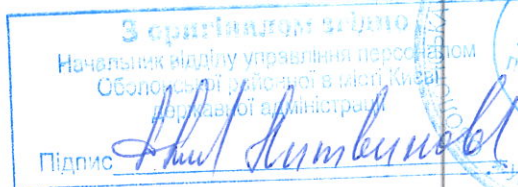 З оригіналом згідно
Начальник відділу управління персоналом
Оболонської районної в місті Києві
державної адміністрації
Підпис